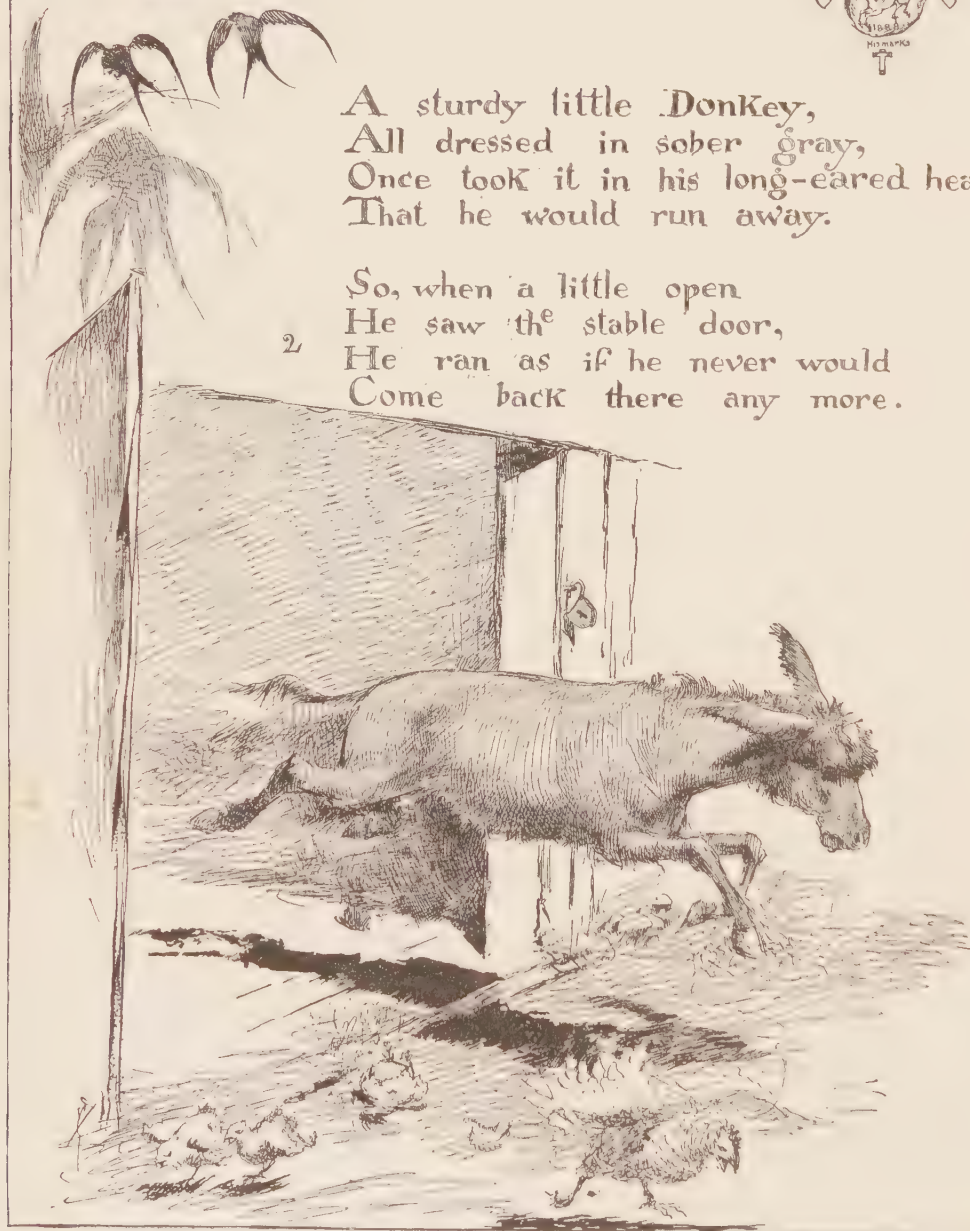 1888
His marks
A sturdy little Donkey,
All dressed in sober gray,
Once took it in his long-eared
That he would run away.
So, when a little open
He saw the stable door,
2
He ran as if he never would
Come back there any more.